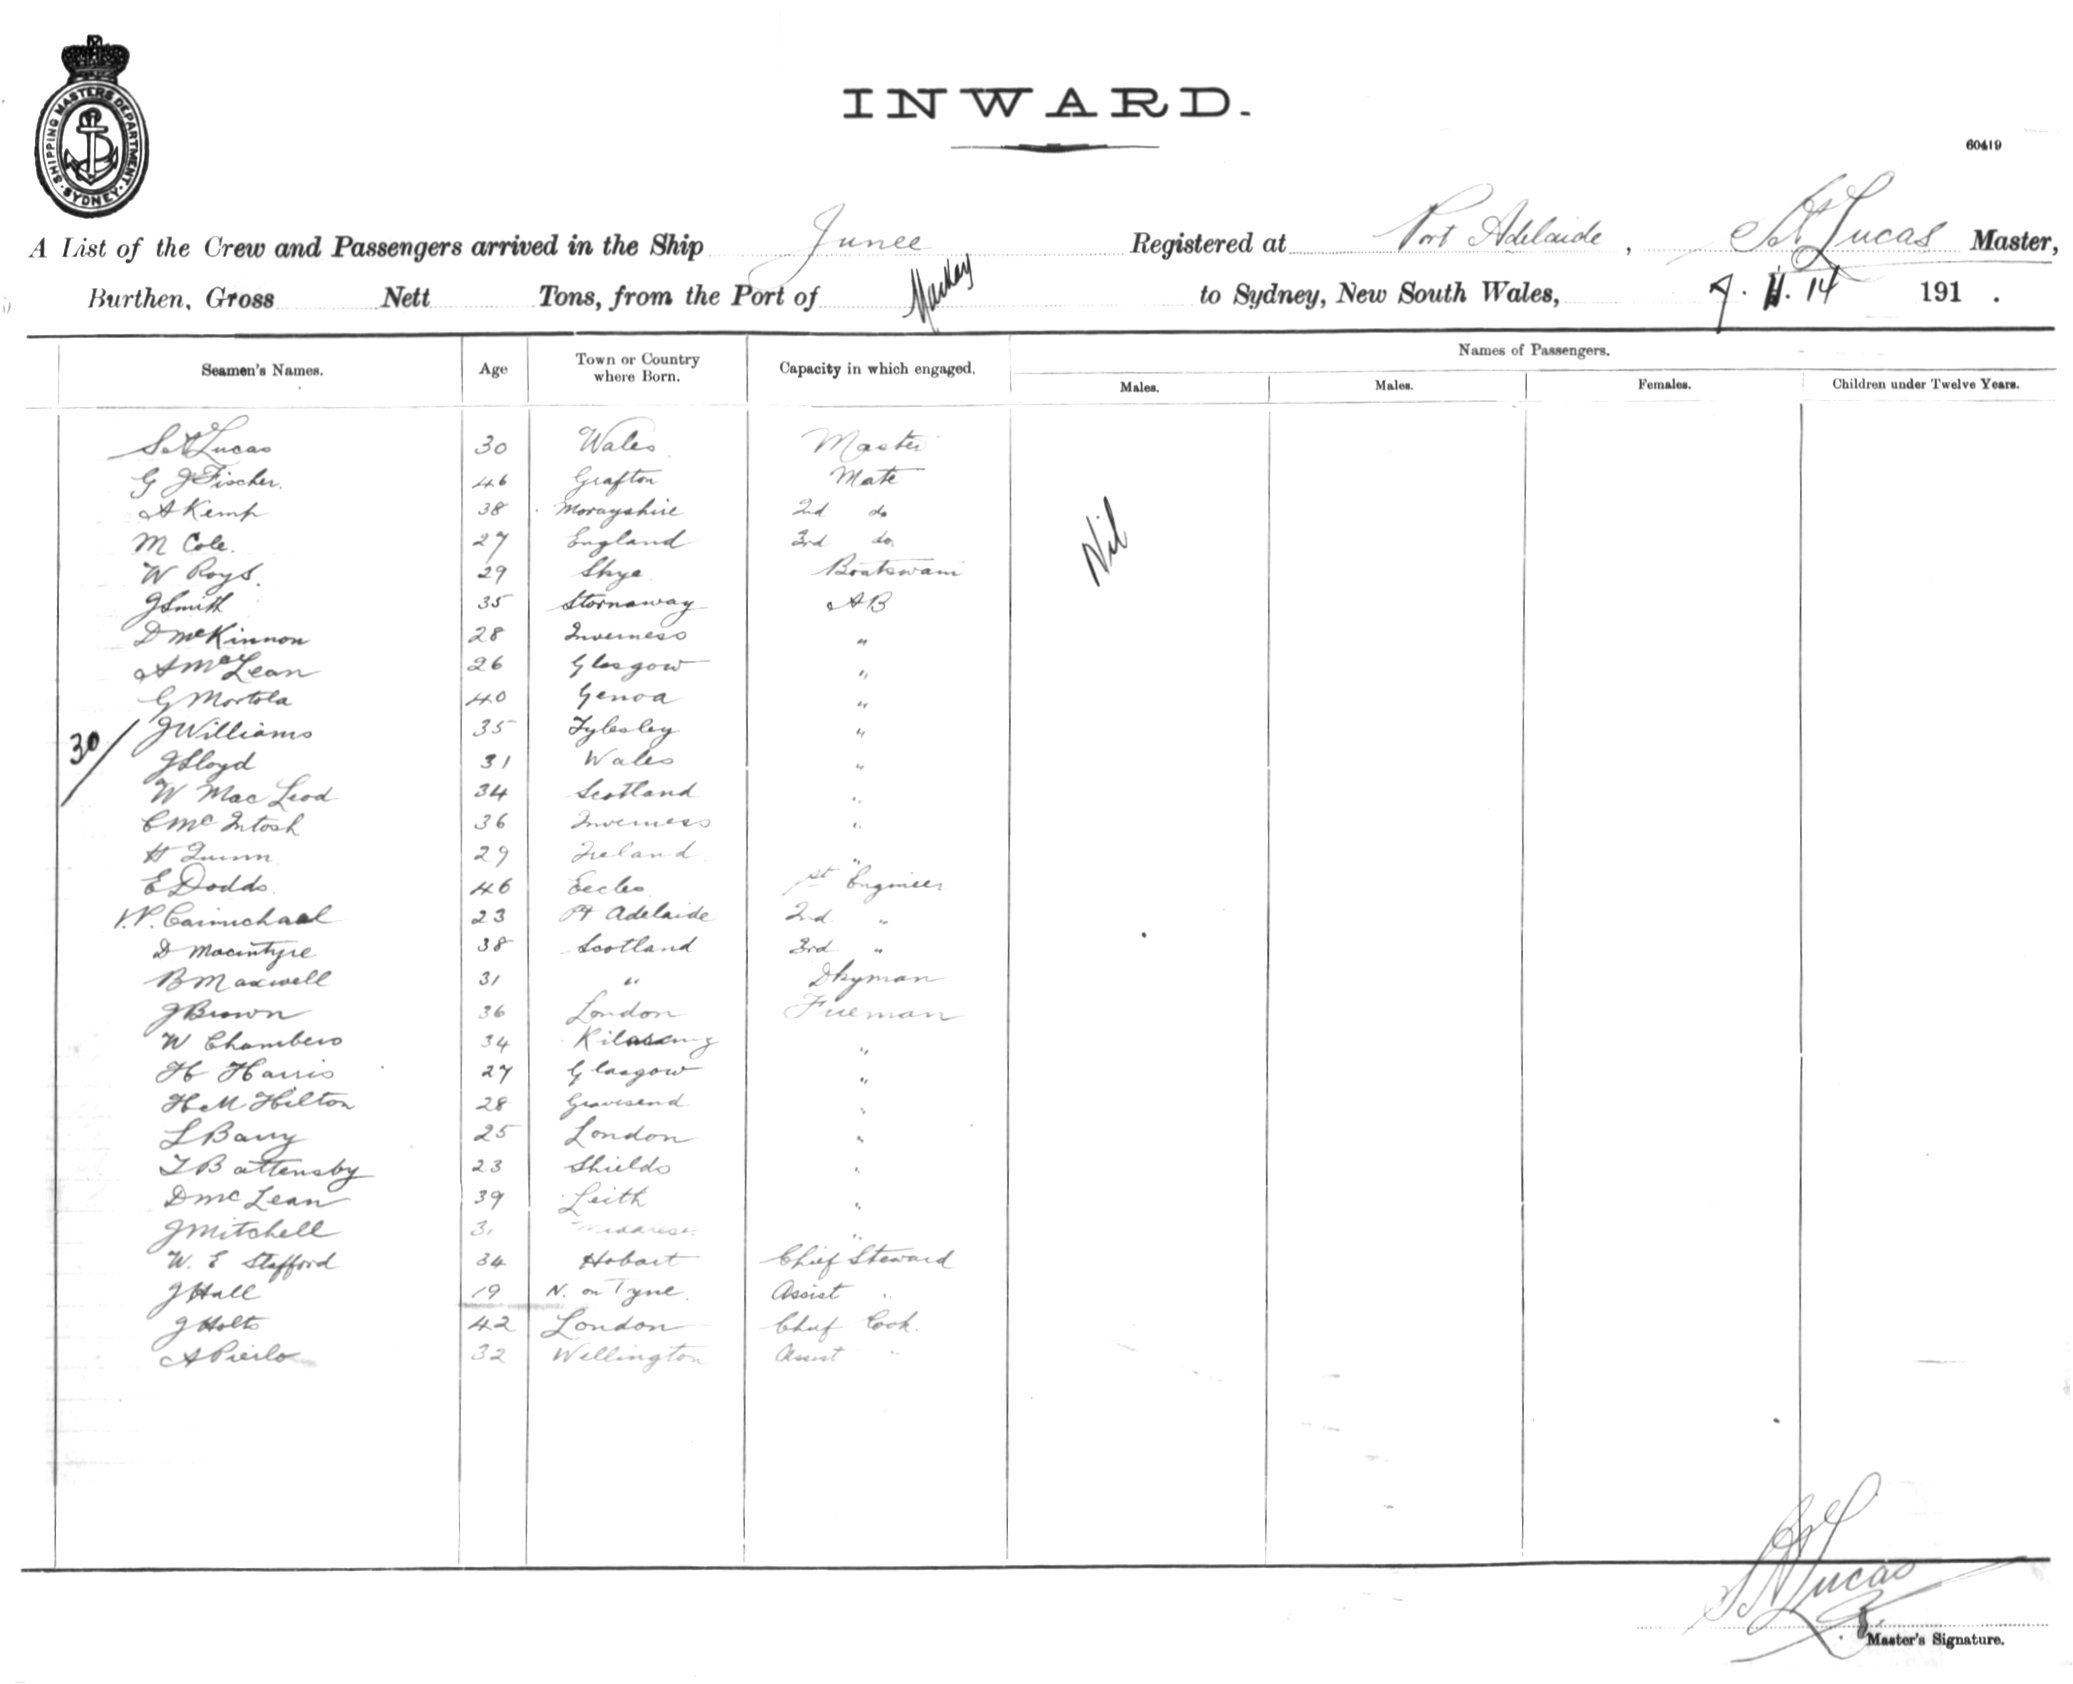 SHIPPING MASTERS DEPARTMENT. SYDNEY.
INWARD.
60419
A List of the Crew and Passengers arrived in the Ship Junee Registered at Port Adelaide, St Lucas Master,
Burthen, Gross Nett Tons, from the Port of Mackay to Sydney, New South Wales, 7. 11. 14 191 .
Seamen's Names. Age Town or Country where Born. Capacity in which engaged. Names of Passengers.
Males. Males. Females. Children under Twelve Years.
Lucas 30 Wales Master
G J Fischer. 46 Grafton Mate
A Kemp 38 Morayshire 2nd do
M Cole. 27 England 3rd do
Nil
W Roys. 29 Skye Boatswain
J Smith 35 Stornaway AB
D McKinnon 28 Inverness "
A McLean 26 Glasgow "
G Mortola 40 Genoa "
30/
J Williams 35 Tylesley "
J Lloyd 31 Wales "
W Mac Leod 34 Scotland "
C McIntosh 36 Inverness "
H Quinn 29 Ireland "
E Dodds. 46 Eccles 1st Engineer
V.P. Carmichael 23 Pt Adelaide 2nd "
D Macintyre 38 Scotland 3rd "
B Maxwell 31 " Dkyman
J Brown 36 London Fireman
W Chambers 34 "
H Harris 27 Glasgow "
H M Hilton 28 Gravesend "
L Barry 25 London "
T Battensby 23 Shields "
D McLean 39 Leith "
J Mitchell 31 "
W. E Stafford 34 Hobart Chief Steward
J Hall 19 N. on Tyne. Assist "
J Holts 42 London Chief Cook.
A Pierlo 32 Wellington Assist "
Lucas
Master's Signature.